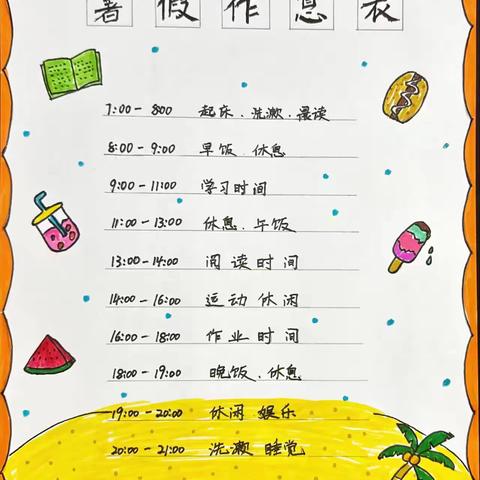 暑假作息表
7:00 - 8:00 起床、洗漱、晨读
8:00 - 9:00 早饭、休息
9:00 - 11:00 学习时间
11:00 - 13:00 休息、午饭
13:00 - 14:00 阅读时间
14:00 - 16:00 运动休闲
16:00 - 18:00 作业时间
18:00 - 19:00 晚饭、休息
19:00 - 20:00 休闲娱乐
20:00 - 21:00 洗漱睡觉